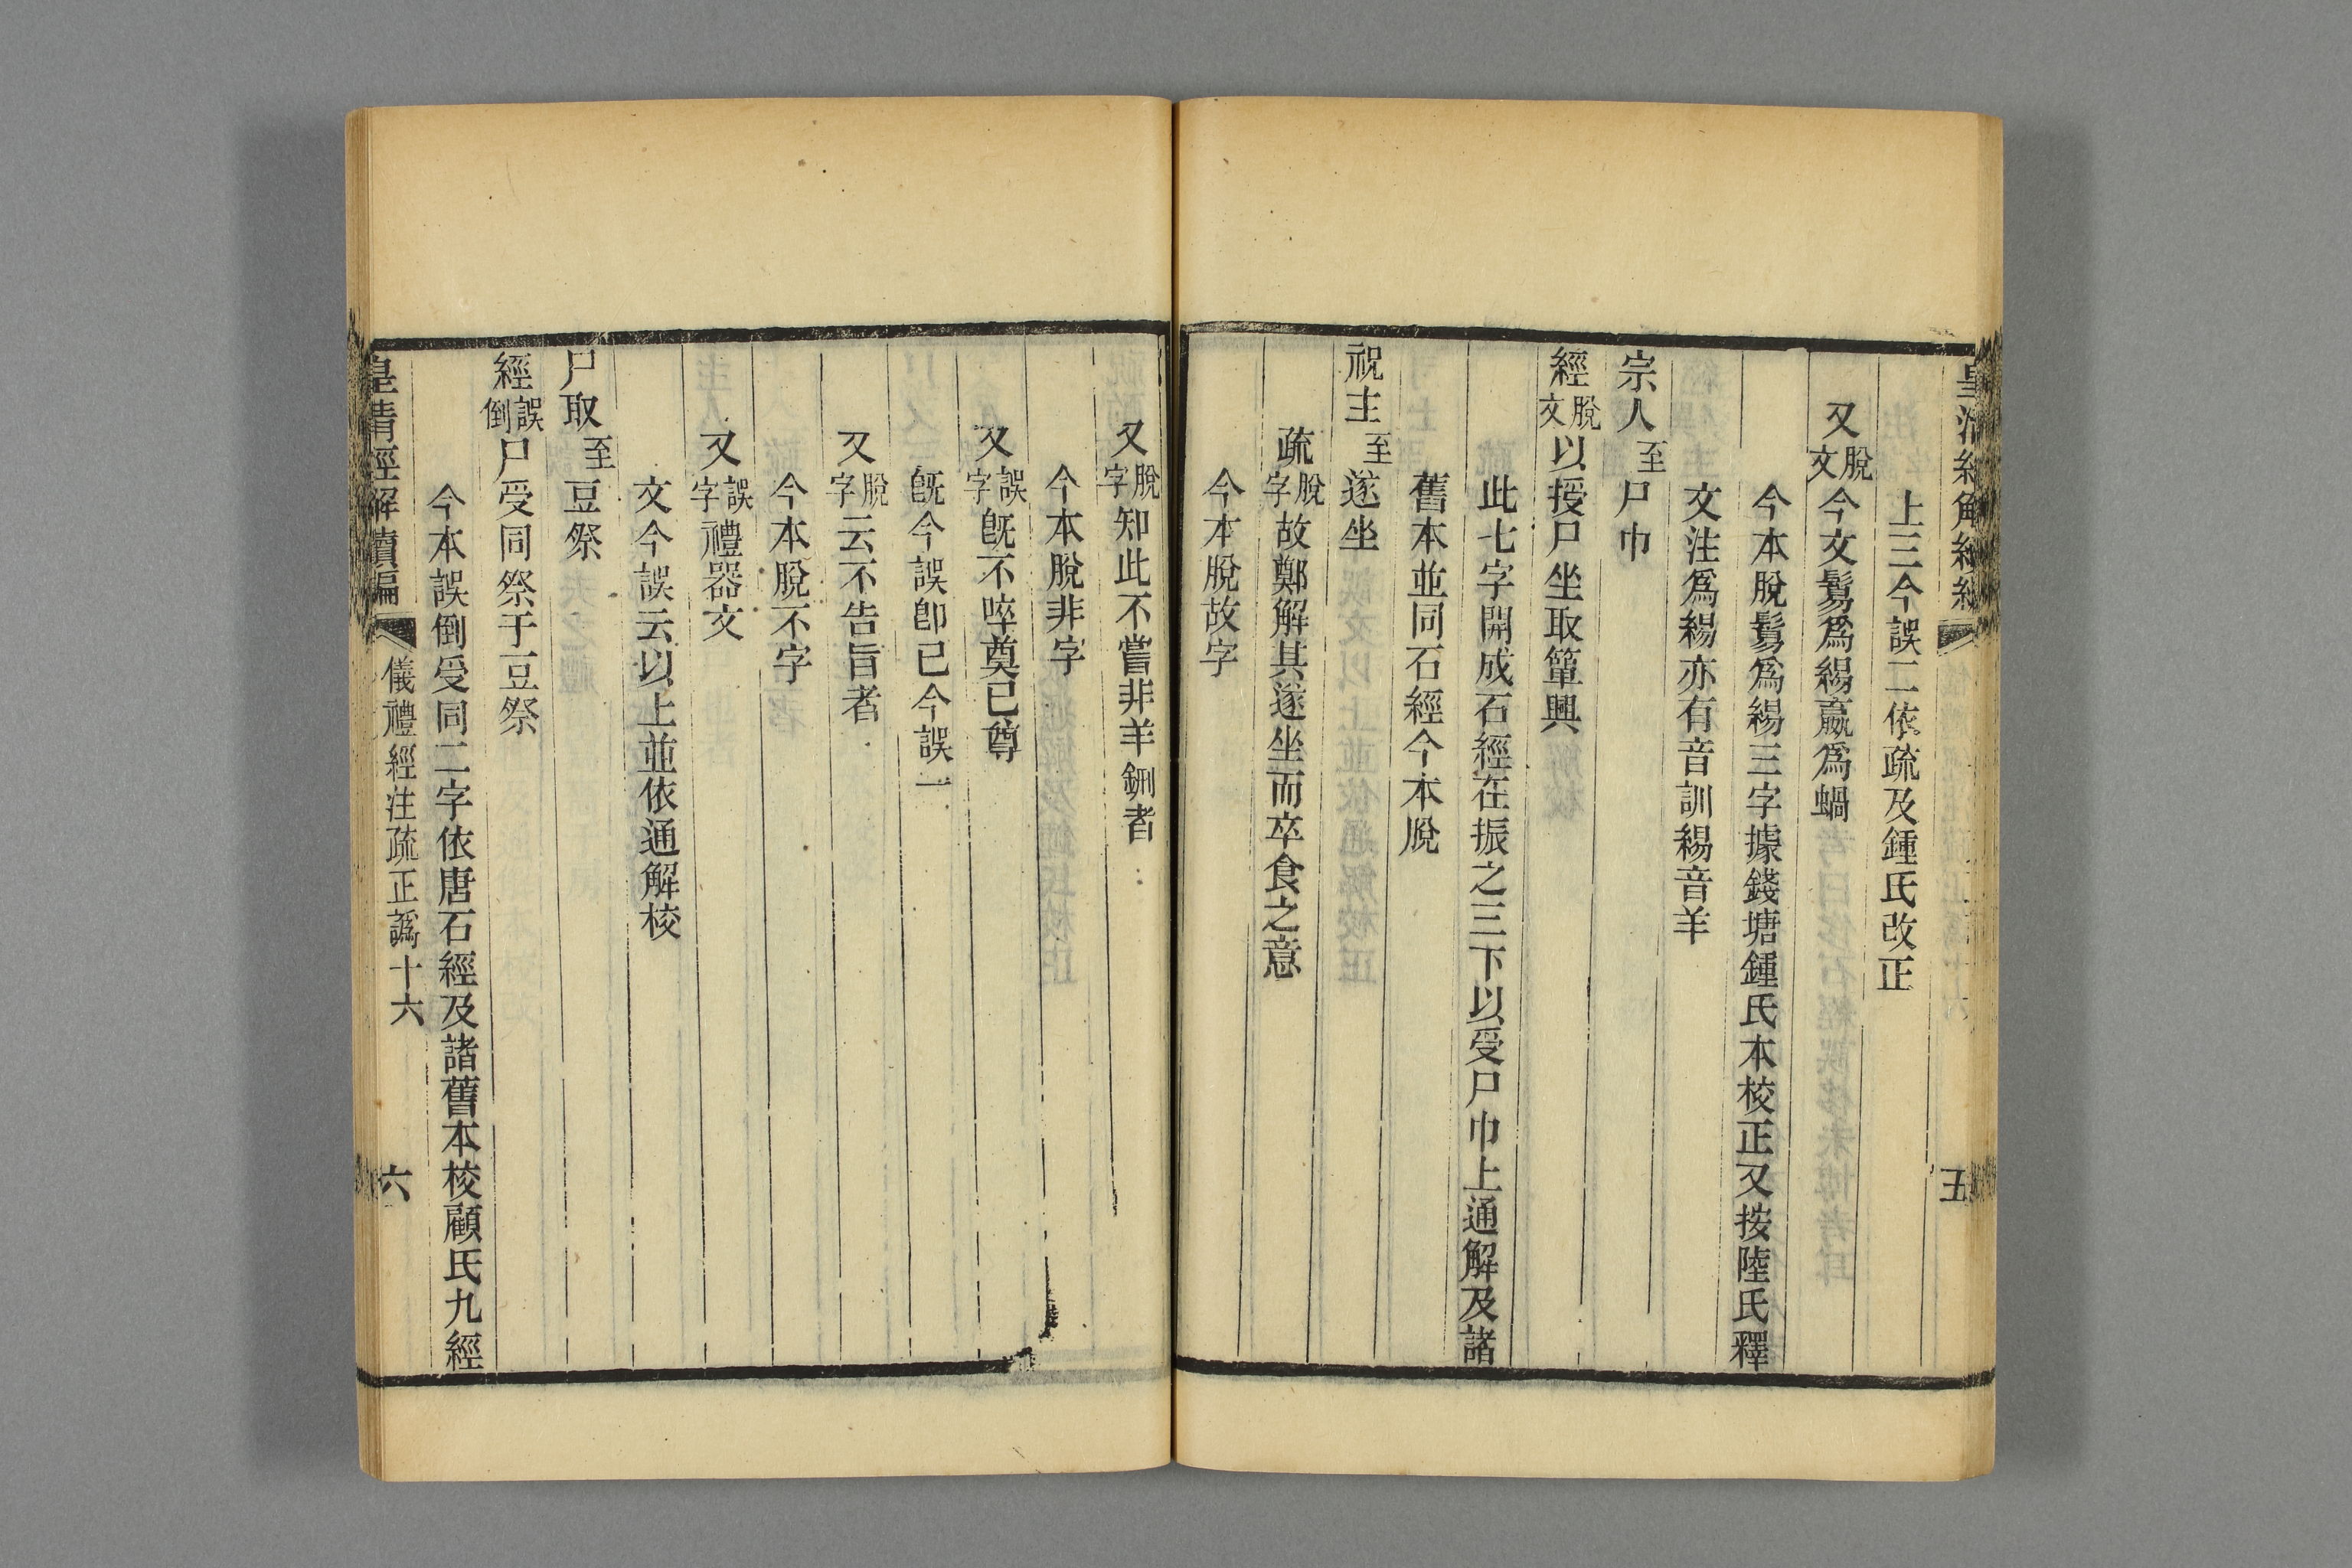 上三今誤二依疏及鍾氏改正
又脫文今文鬄爲緆蠃爲蝸
今本脫鬄爲緆三字據錢塘鍾氏本校正又按陸氏釋
文注爲緆亦有音訓緆音羊
宗人至尸巾
經脫文以授尸坐取簞興
此七字開成石經在振之三下以受尸巾上通解及諸
舊本並同石經今本脫
祝主至遂坐
疏脫字故鄭解其遂坐而卒食之意
今本脫故字
五
又脫字知此不嘗非羊鉶者
今本脫非字
又誤字旣不啐奠已尊
旣今誤卽已今誤一
又脫字云不告旨者
今本脫不字
又誤字禮器文
文今誤云以上並依通解校
尸取至豆祭
經誤倒尸受同祭于豆祭
今本誤倒受同二字依唐石經及諸舊本校顧氏九經
皇清經解續編
儀禮經注疏正譌十六
六